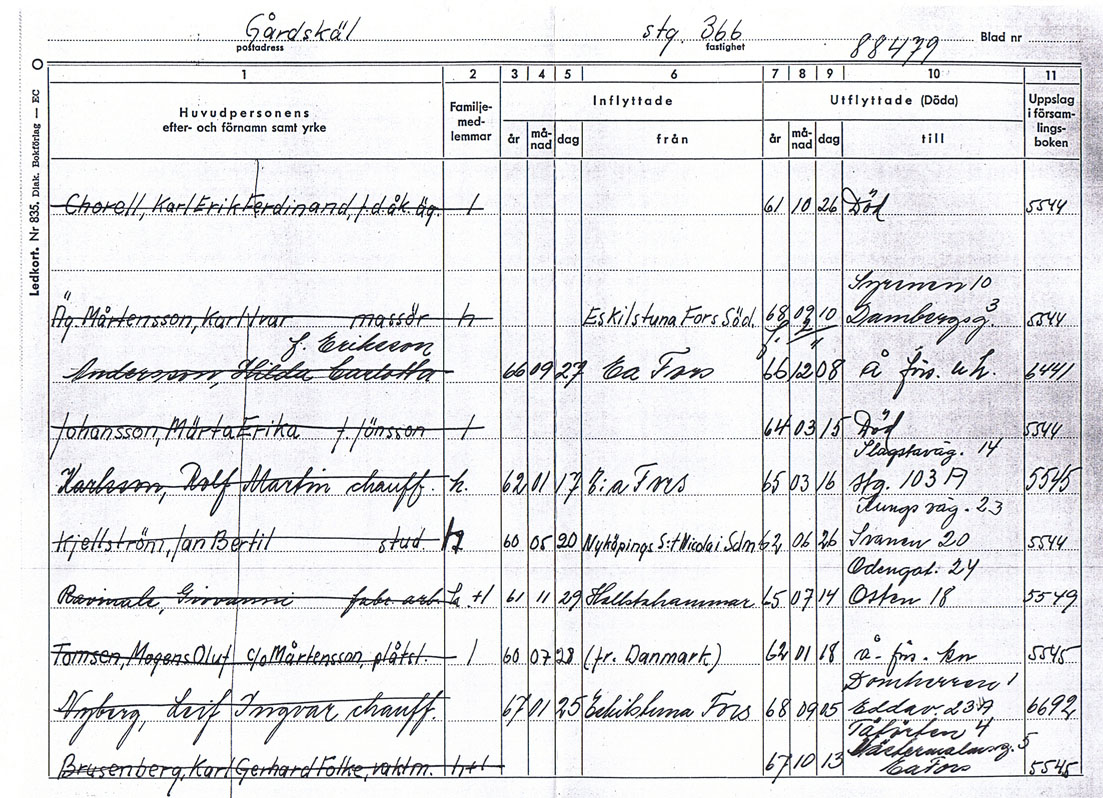 Gårdskäl stg. 366 88479 Blad nr
postadress fastighet
1 2 3 4 5 6 7 8 9 10 11
Huvudpersonens efter- och förnamn samt yrke
Familje-med-lemmar
Inflyttade
år må-nad dag från
Utflyttade (Döda)
år må-nad dag till
Uppslag i försam-lings-boken
Ledkort. Nr 835. Diak. Bokförlag — EC
Chorell, Karl Erik Ferdinand, f.d. åk. äg. 1 61 10 26 Död 5544
Syrenen 10
Äg. Mårtensson, Karl Ivar massör h Eskilstuna Fors Söd. 68 09 10 Dambergsg. 3 5544
f. Eriksson
Andersson, Hilda Carlotta 66 09 27 Ea Fors 66 12 08 å förs. u h. 6441
Johansson, Märta Erika f. Jönsson 1 64 03 15 Död 5544
Slagstaväg. 14
Karlsson, Rolf Martin chauff. h. 62 01 17 E:a Fors 65 03 16 stg. 103 A 5545
Kungsväg. 23
Kjellström, Jan Bertil stud. h 60 05 20 Nyköpings S:t Nicolai Sdm 62 06 26 Svanen 20 5544
Odengat. 24
Giovanni fabr. arb. +1 61 11 29 Hallstahammar 65 07 14 Osten 18 5549
Tomsen, Mogens Oluf c/o Mårtensson, plåtsl. 1 60 07 28 (fr. Danmark) 62 01 18 å - förs. kn 5545
Domherren 1
Nyberg, Leif Ingvar chauff. 67 01 25 Eskilstuna Fors 68 09 05 Eddav. 23 A 6692
4
Västermalmsg. 5
Brusenberg, Karl Gerhard Folke, vaktm. h+1 67 10 13 Ea Fors 5545